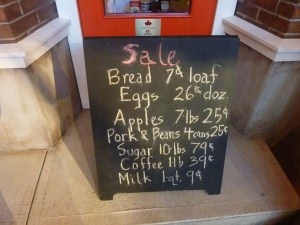 Sale
Bread 7¢ loaf
Eggs 26¢ doz.
Apples 7 lbs 25¢
Pork & Beans 4 cans 25¢
Sugar 10 lbs 79¢
Coffee 1 lb 39¢
Milk 1 qt. 9¢